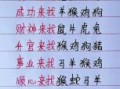 成功来找羊猴鸡狗
财神来找鼠牛虎兔
升官来找猴鸡狗猪
事业来找马羊
顺心来找猴蛇马羊